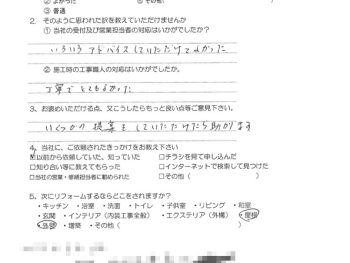 ② よかった　② 悪かった
③ 普通
2. そのように思われた訳を教えていただけませんか
① 当社の受付及び営業担当者の対応はいかがでしたか？
いろいろアドバイスしていただけてよかった
② 施工時の工事職人の対応はいかがでしたか。
丁寧でとてもよかった
3、お褒めいただける点、又こうしたらもっと良い点等ご意見下さい。
いくつか提案をしていただけたら助かります
4、当社に、ご依頼されたきっかけをお教え下さい
以前から依頼していた、知っていた　□チラシを見て申し込んだ
□知り合い等に教えてもらった　□インターネットで検索して見つけた
□当社の営業・修繕担当者に勧められた　□その他（　　）
5、次にリフォームするならどこをされますか？
・キッチン ・浴室 ・洗面 ・トイレ ・子供室 ・リビング ・和室
・玄関 ・インテリア（内装工事全般） ・エクステリア（外構） ・屋根
・外壁 ・増築 ・その他（　　）